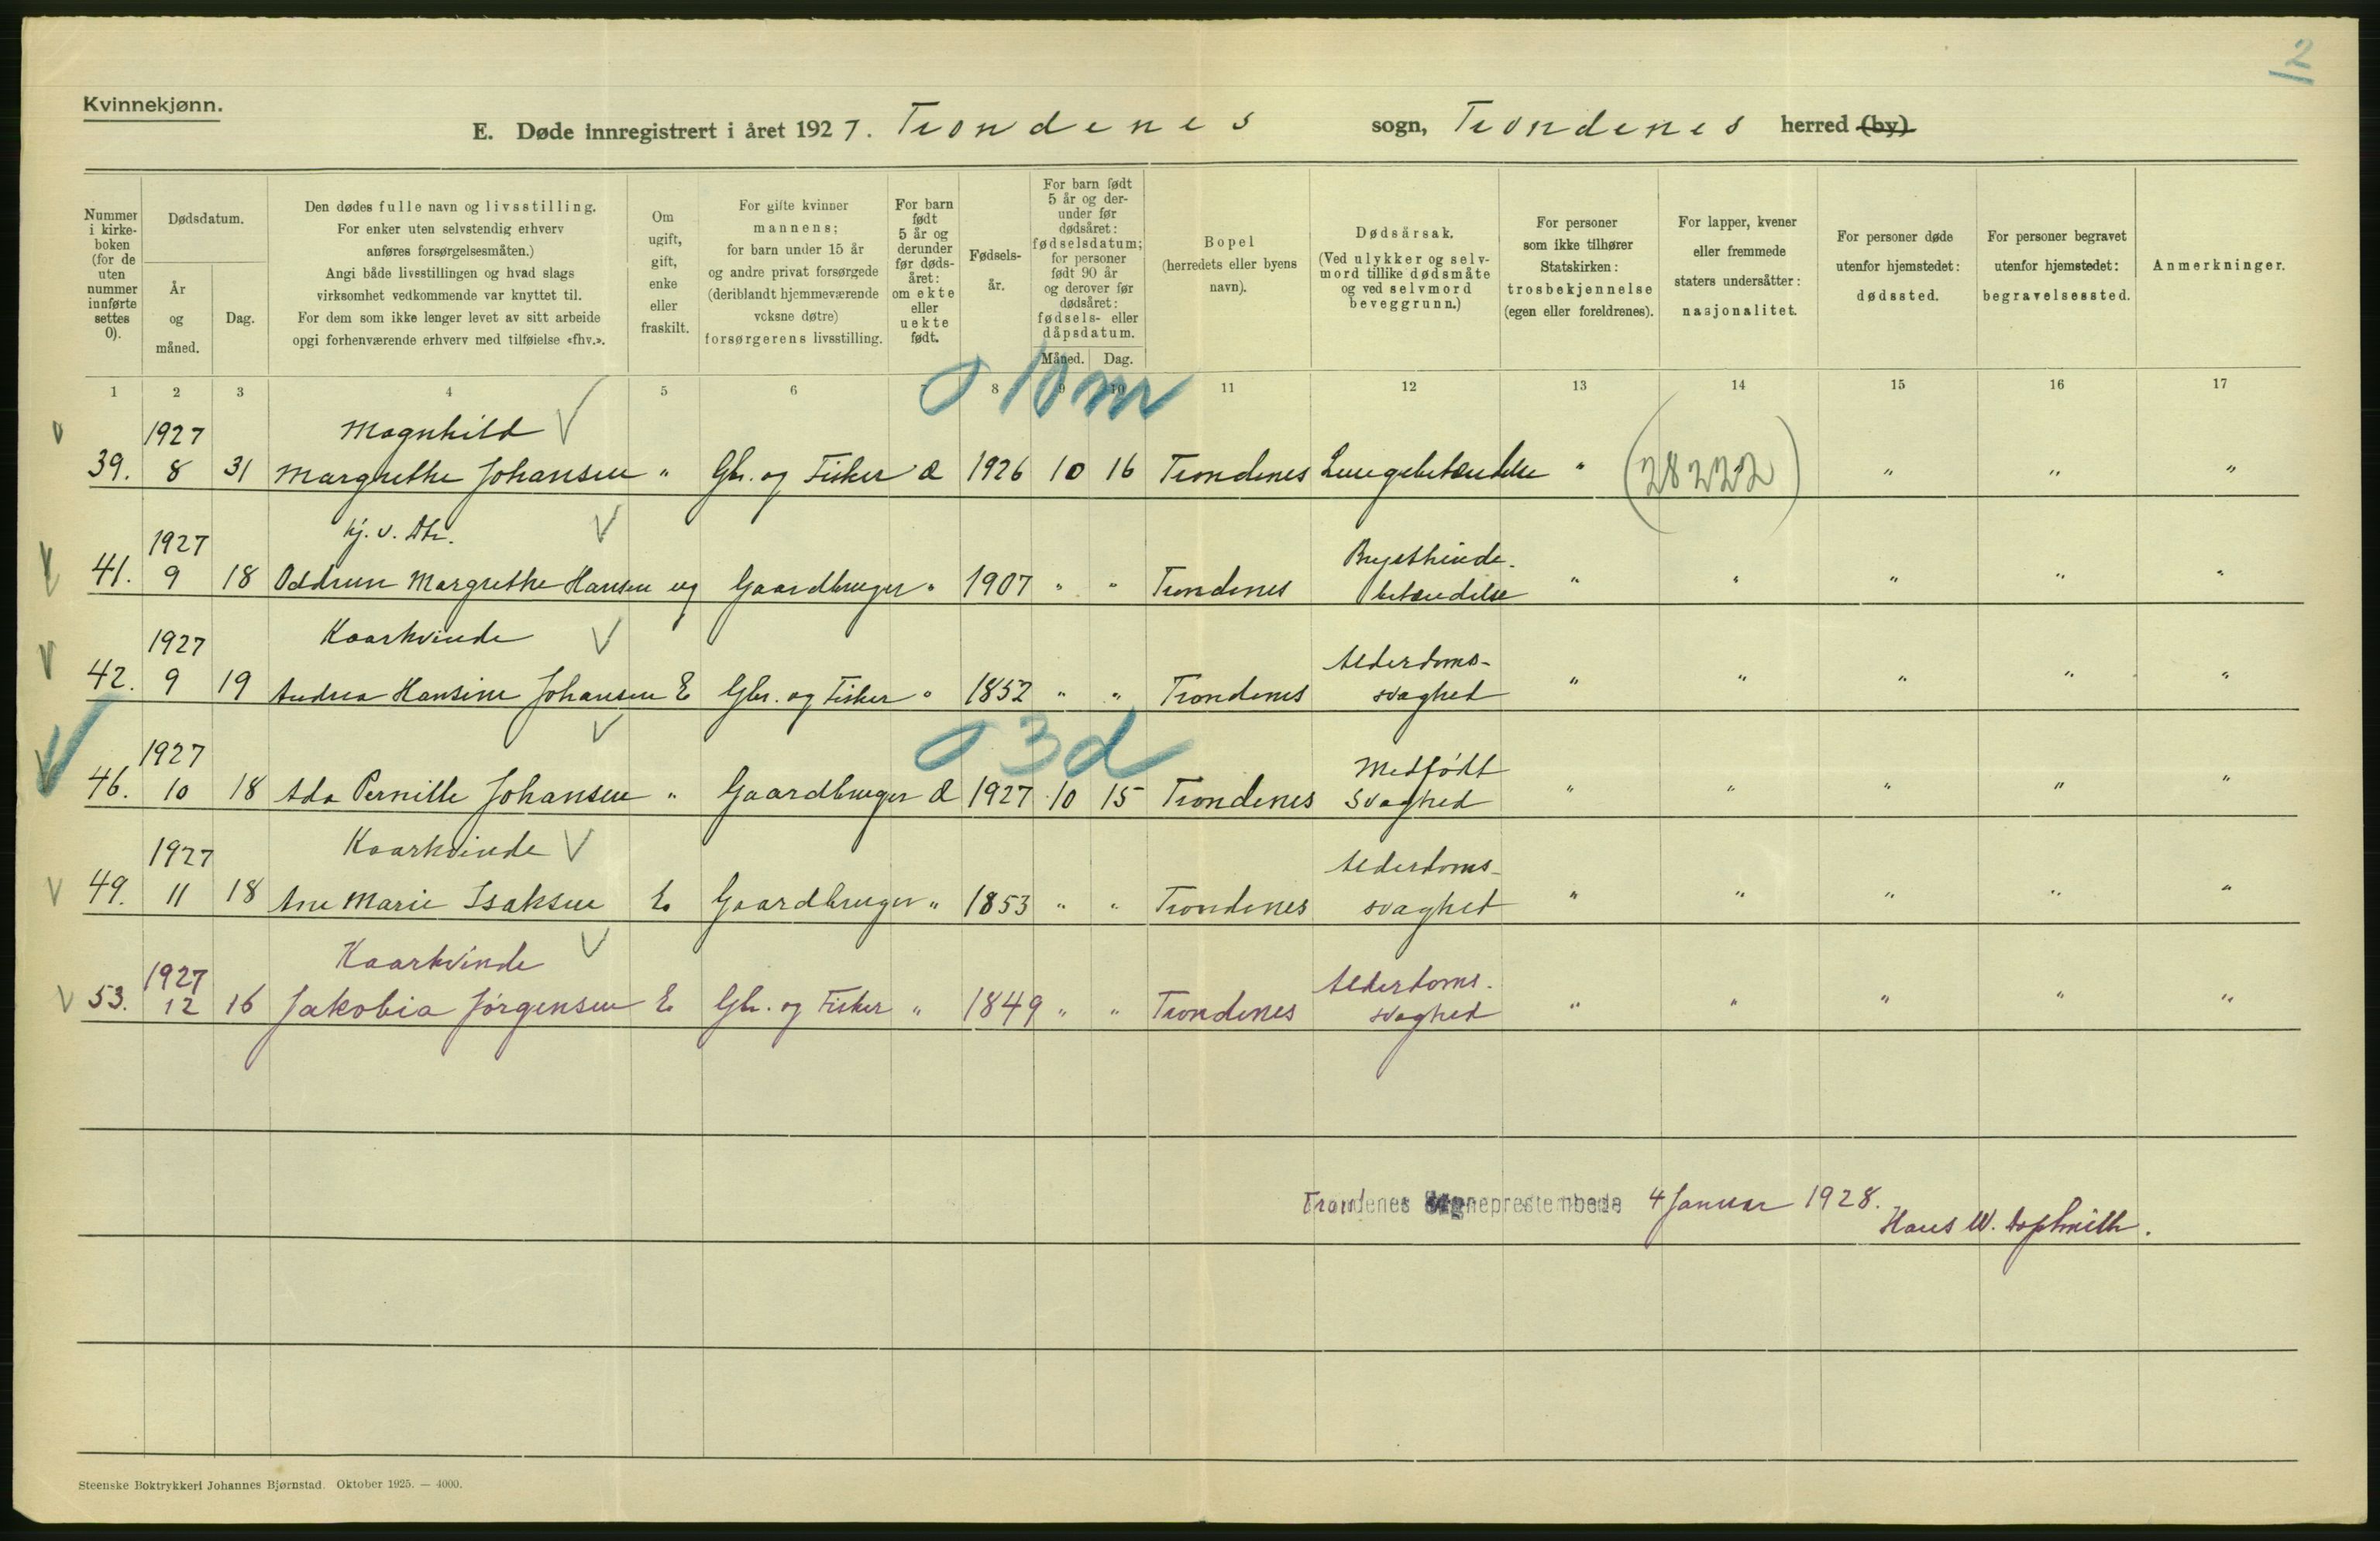 2
Kvinnekjønn.
E. Døde innregistrert i året 1927. Trondenes sogn, Trondenes herred (by)
Nummer i kirke-boken (for de uten nummer innførte settes 0).
Dødsdatum.
År og måned.
Dag.
Den dødes fulle navn og livsstilling.
For enker uten selvstendig erhverv
anføres forsørgelsesmåten.)
Angi både livsstillingen og hvad slags
virksomhet vedkommende var knyttet til.
For dem som ikke lenger levet av sitt arbeide
opgi forhenværende erhverv med tilføielse «fhv.».
Om ugift, gift, enke eller fraskilt.
For gifte kvinner
mannens;
for barn under 15 år
og andre privat forsørgede
(deriblandt hjemmeværende
voksne døtre)
forsørgerens livsstilling.
For barn født 5 år og derunder før døds-året: om ekte eller uekte født.
Fødsels-år.
For barn født 5 år og der-under før dødsåret: fødselsdatum; for personer født 90 år og derover før dødsåret: fødsels- eller dåpsdatum.
Måned. Dag.
Bopel
(herredets eller byens
navn).
Dødsårsak.
(Ved ulykker og selv-
mord tillike dødsmåte
og ved selvmord
beveggrunn.)
For personer
som ikke tilhører
Statskirken:
trosbekjennelse
(egen eller foreldrenes).
For lapper, kvener
eller fremmede
staters undersåtter:
nasjonalitet.
For personer døde
utenfor hjemstedet:
dødssted.
For personer begravet
utenfor hjemstedet:
begravelsessted.
Anmerkninger.
1 2 3 4 5 6 7 8 9 10 11 12 13 14 15 16 17
0 10 m
1927 Magnhild
39. 8 31 Margrethe Johansen " Gbr. og Fisker Æ 1926 10 16 Trondenes Lungebetændelse " (28222) " " "
1927 hj. v. Dtr. Brysthinde-
41. 9 18 Oddrun Margrethe Hansen ug Gaardbruger " 1907 " " Trondenes betændelse " " " " "
1927 Kaarkvinde Alderdoms-
42. 9 19 Andrea Hansine Johansen E Gbr. og Fisker " 1852 " " Trondenes svaghed " " " " "
0 3 d
1927 Medfødt
46. 10 18 Ada Pernille Johansen " Gaardbruger Æ 1927 10 15 Trondenes Svaghed " " " " "
1927 Kaarkvinde Alderdoms-
49. 11 18 Ane Marie Isaksen E. Gaardbruger " 1853 " " Trondenes svaghed " " " " "
1927 Kaarkvinde Alderdoms-
53. 12 16 Jakobia Jørgensen E. Gbr. og Fisker " 1849 " " Trondenes svaghed " " " " "
Trondenes Sogneprestembede 4 Januar 1928.
Hans W.
Steenske Boktrykkeri Johannes Bjørnstad. Oktober 1925. — 4000.